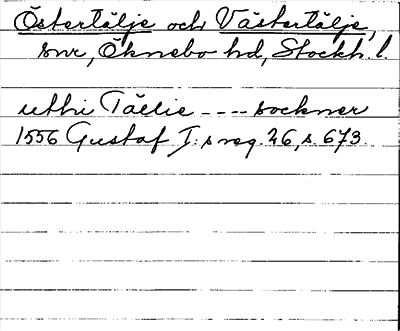 Östertälje och Västertälje,
snr, Öknebo hd, Stockh. l.
uthi Tällie ---- sockner
1556 Gustaf I:s reg. 26, s. 673.